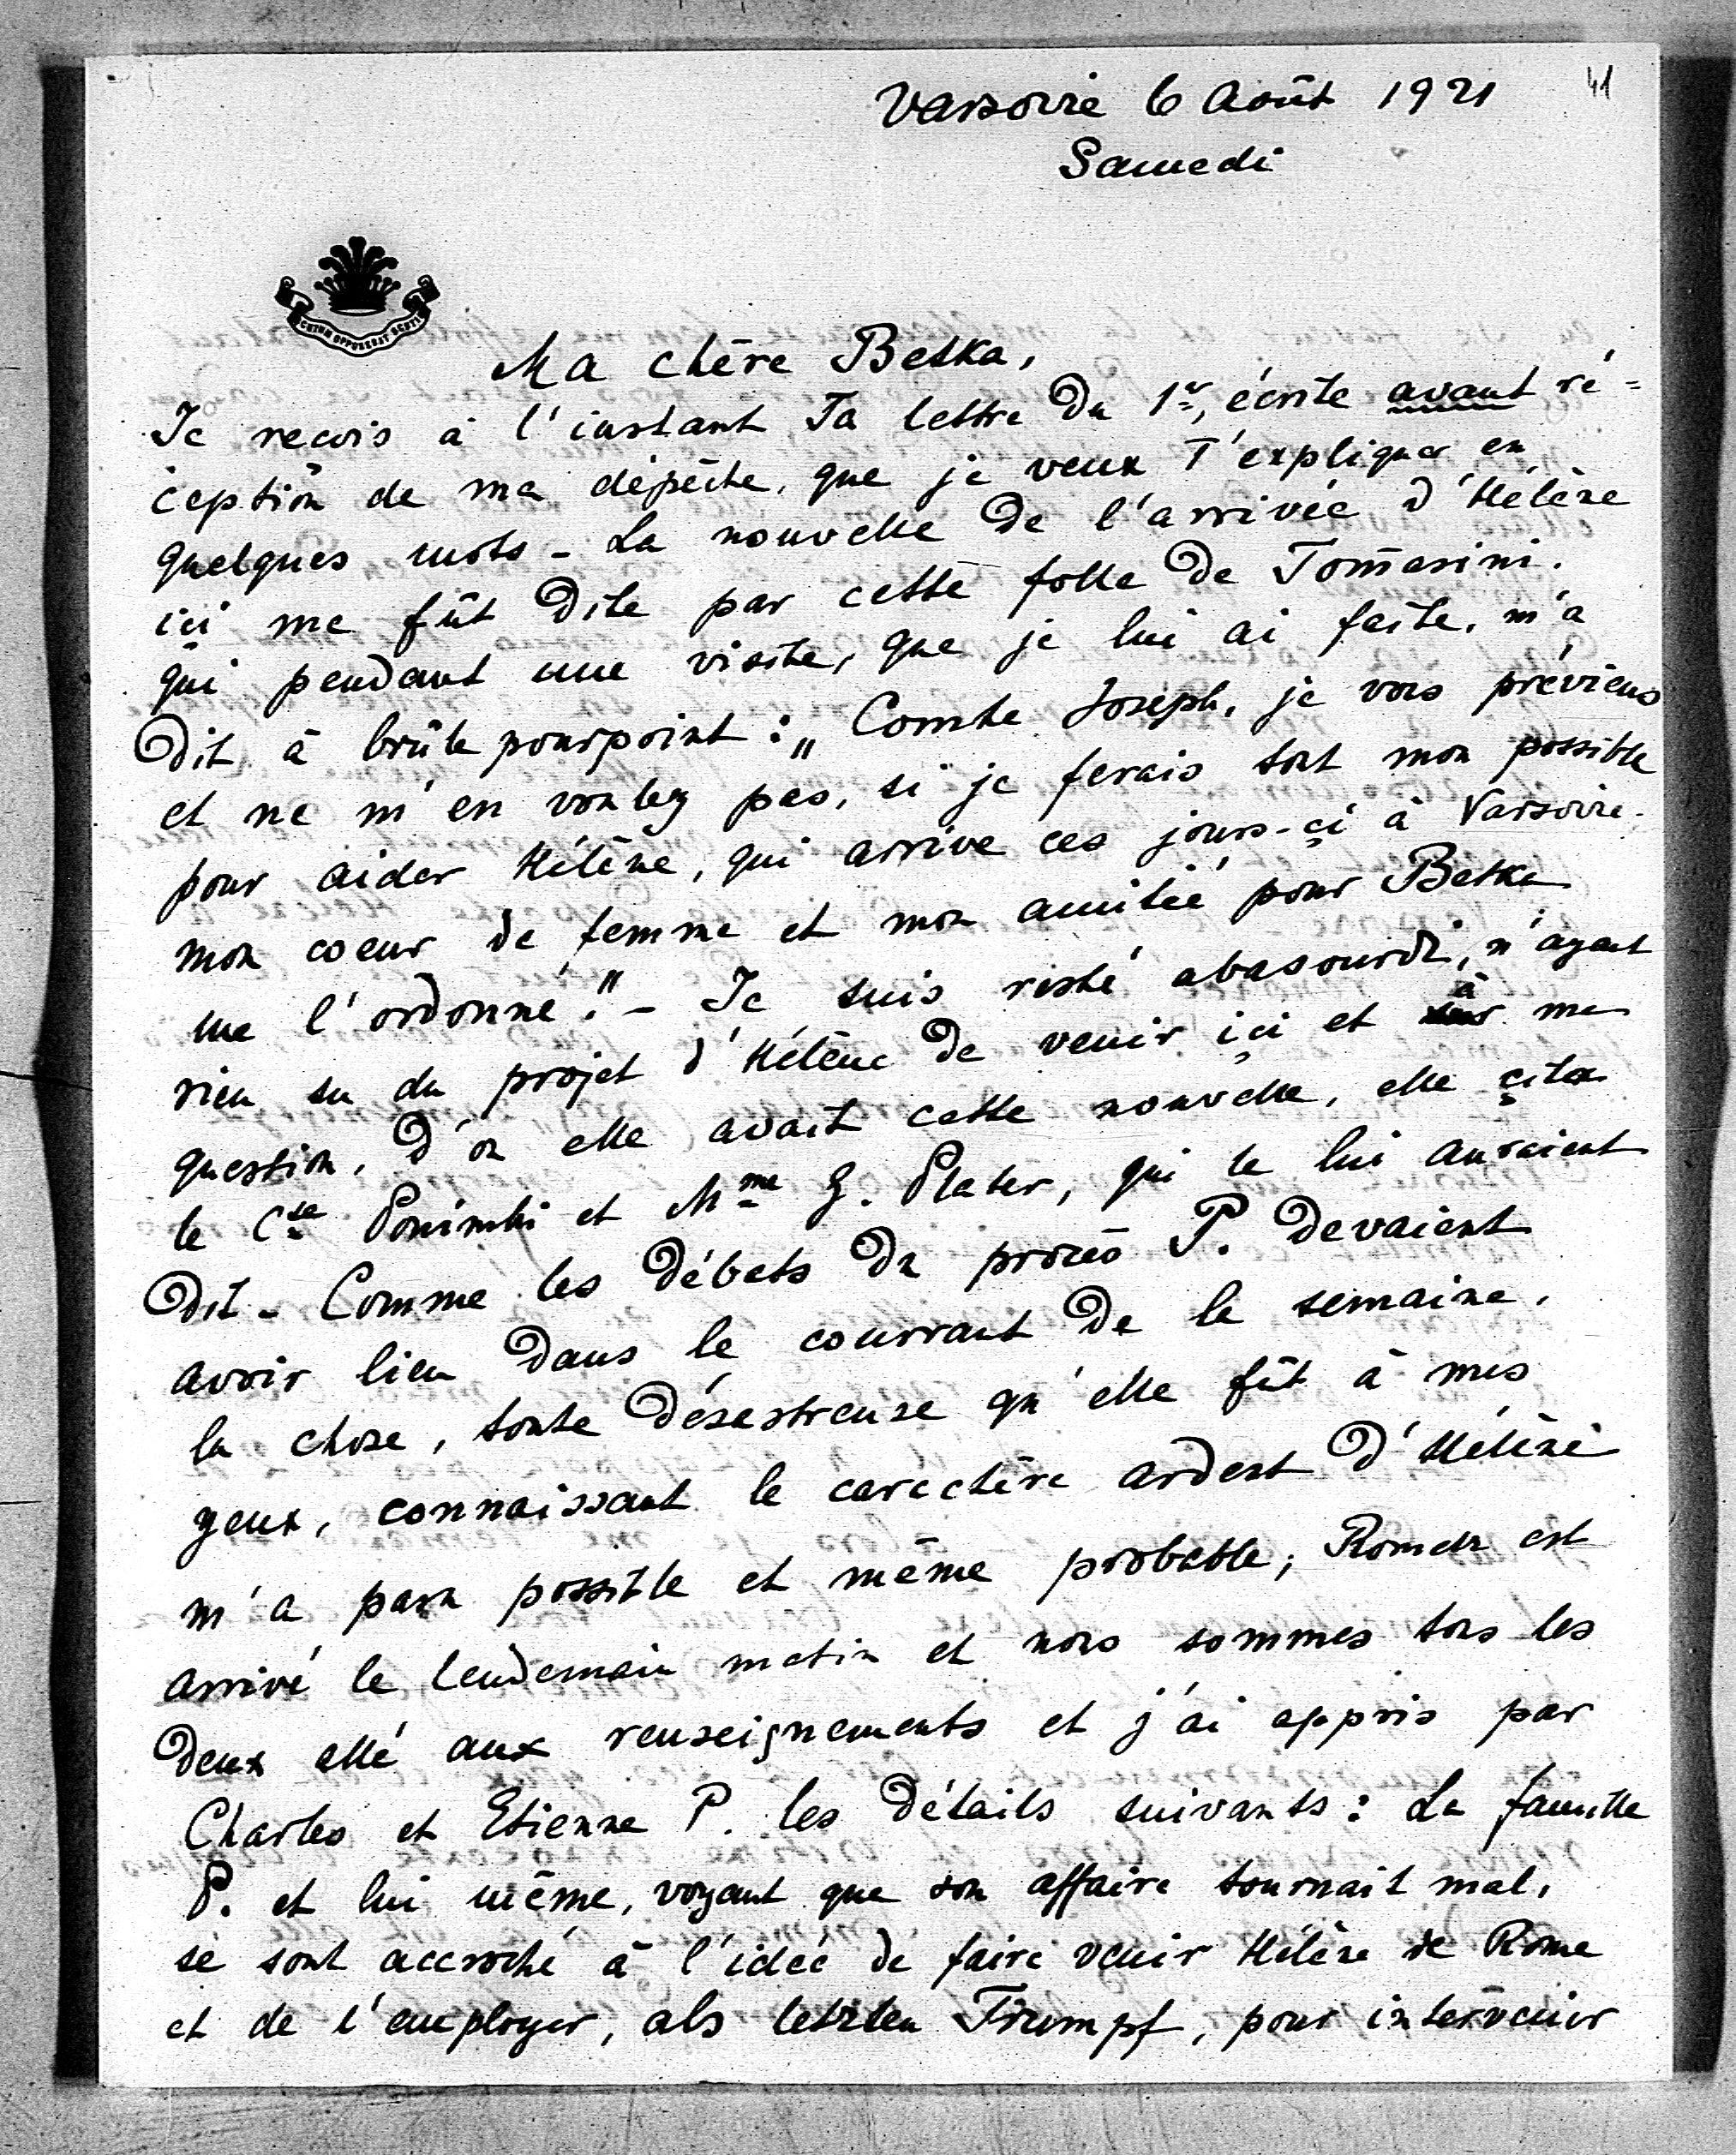 41
Varsovie 6 Août 1921
Samedi
Ma chère Betka,
Je reçois à l'instant Ta lettre du 1er, écrite avant ré=
ception de ma dépêche, que je veux T'expliquer en
quelques mots - La nouvelle de l'arrivée d'Hélène
ici me fût dite par cette folle de Tomasini.
qui pendant une visite, que je lui ai faite, m'a
dit à brûle pourpoint : „Comte Joseph, je vous préviens
et ne m'en voulez pas, si je ferais tout mon possible
pour aider Hélène, qui arrive ces jours-çi à Varsovie.
mon coeur de femme et mon amitié pour Betka
me l'ordonne!" - Je suis resté abasourdi, n'ayant
rien su du projet d'Hélène de venir içi et à ma
question, d'ou elle avait cette nouvelle, elle çita
le Cse et Mme G. Plater, qui le lui auraient
dit - Comme les débats du procès P. devaient
avoir lieu dans le courrant de la semaine,
la chose, toute désastreuse qu'elle fût à mes
yeux, connaissant le caractère ardent d'Hélène
m'a paru possible et même probable; Romer est
arrivé le lendemain matin et nous sommes tous les
deux allé aux renseignements et j'ai appris par
Charles et Etienne P. les détails suivants : La famille
P. et lui même, voyant que son affaire tournait mal,
se sont accroché à l'idée de faire venir Hélène de Rome
et de l'employer, als letzten Trumpf, pour intervenir